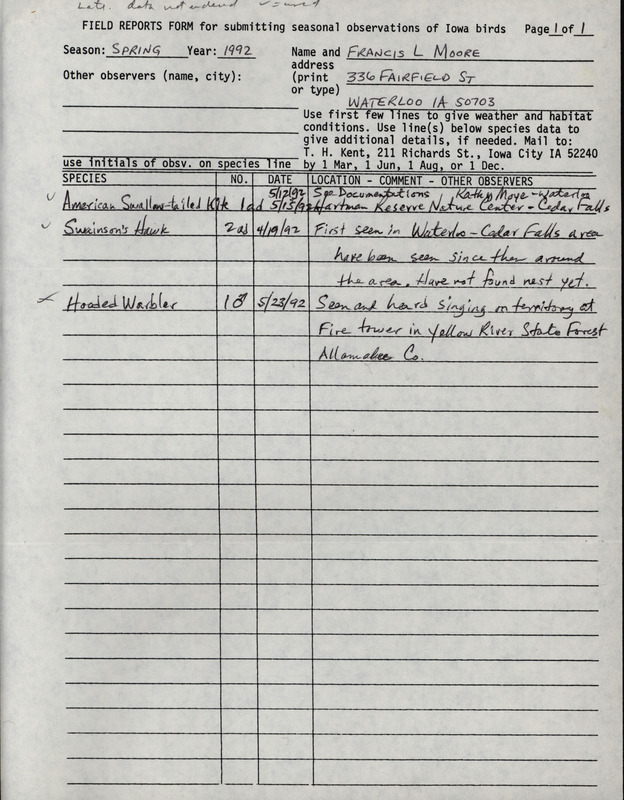 Late. data not entered ✓=used
FIELD REPORTS FORM for submitting seasonal observations of Iowa birds Page 1 of 1
Season: SPRING Year: 1992 Name and FRANCIS L MOORE
address
Other observers (name, city): (print 336 FAIRFIELD ST
or type)
WATERLOO IA 50703
Use first few lines to give weather and habitat
conditions. Use line(s) below species data to
give additional details, if needed. Mail to:
T. H. Kent, 211 Richards St., Iowa City IA 52240
use initials of obsv. on species line by 1 Mar, 1 Jun, 1 Aug, or 1 Dec.
SPECIES NO. DATE LOCATION - COMMENT - OTHER OBSERVERS
5/12/92 See Documentations Kathy Moore - Waterloo
✓ American Swallow-tailed Kite 1 ad 5/13/92 Hartman Reserve Nature Center - Cedar Falls
✓ Swainson's Hawk 2 ad 4/19/92 First seen in Waterloo-Cedar Falls area
have been seen since then around
the area. Have not found nest yet.
Hooded Warbler 1♂ 5/23/92 Seen and heard singing on territory at
Fire tower in Yellow River State Forest
Allamakee Co.